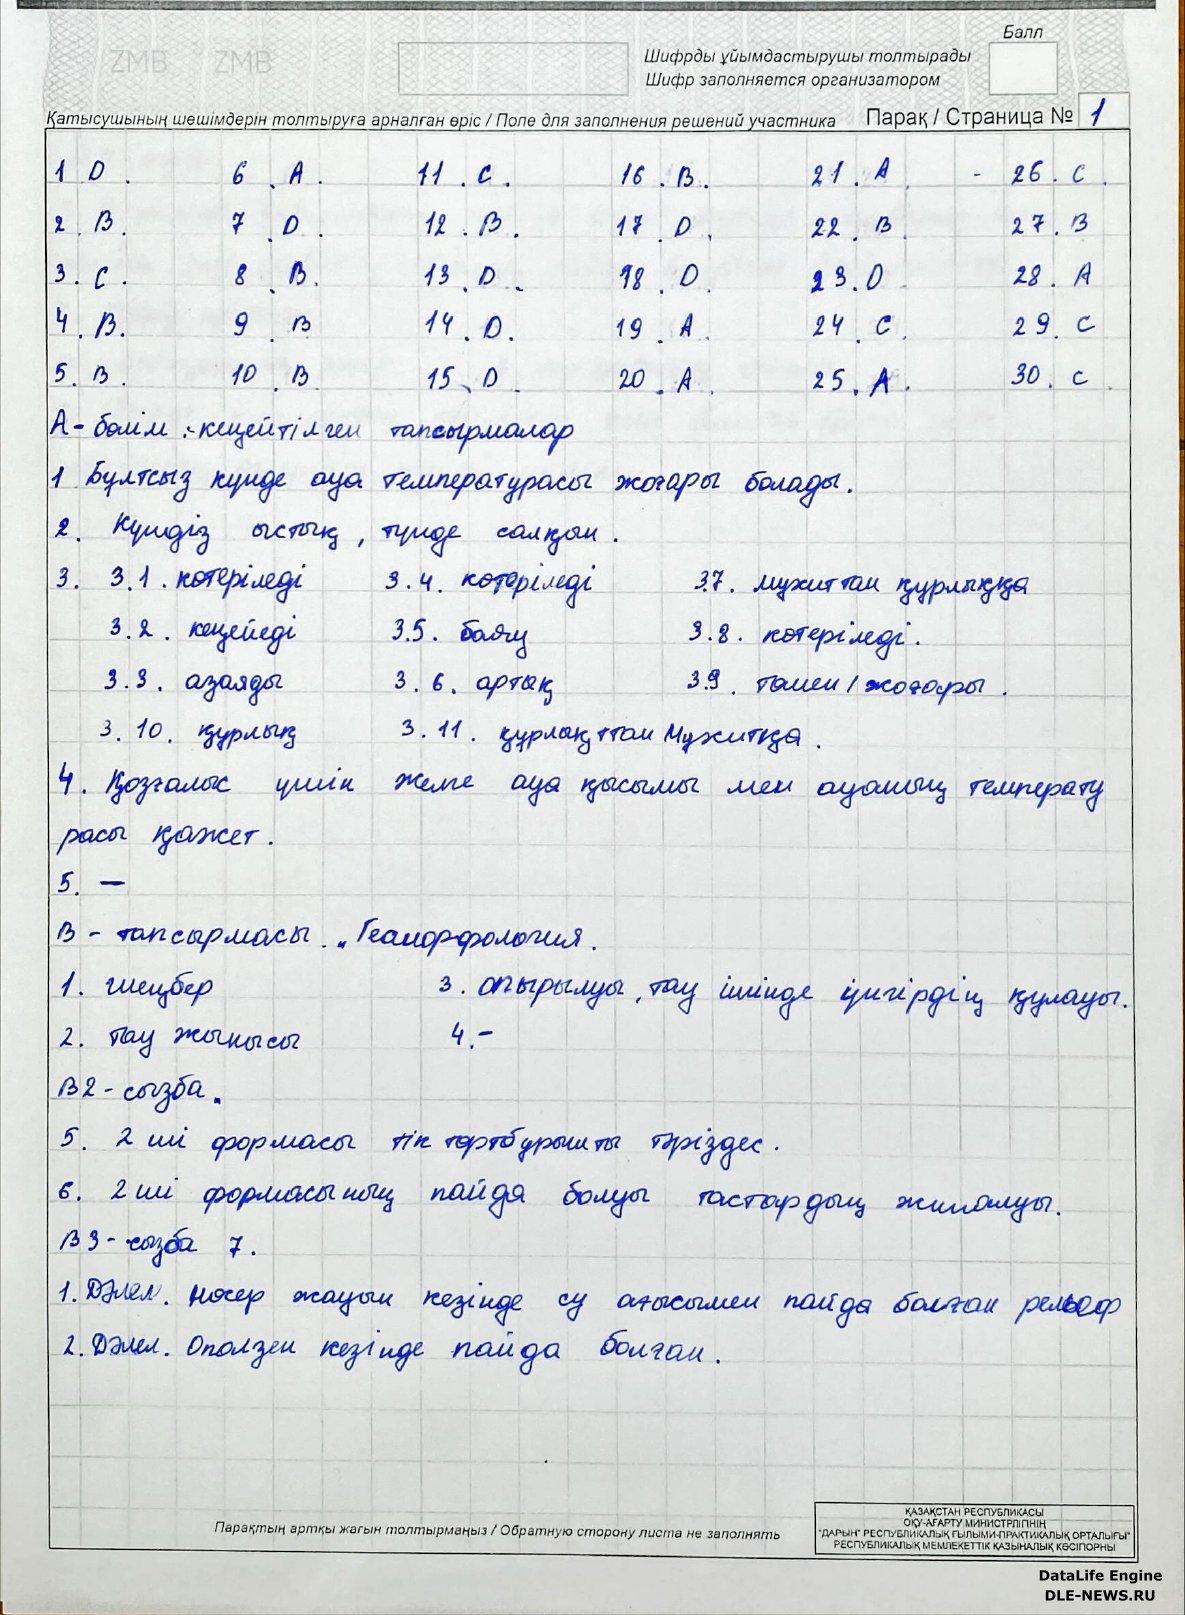 ZMB ZMB
Балл
Шифрды ұйымдастырушы толтырады
Шифр заполняется организатором
Қатысушының шешімдерін толтыруға арналған өріс / Поле для заполнения решений участника Парақ / Страница № 1
1 D. 6. A. 11. C. 16. B. 21. A. 26. C.
2. B. 7. D. 12. B. 17. D. 22. B. 27. B
3. C. 8. B. 13. D. 18. D. 23. D 28. A
4. B. 9. B 14. D. 19. A. 24. C. 29. C
5. B. 10. B 15. D. 20. A. 25. A. 30. C
А - бөлім :- кеңейтілген тапсырмалар
1 Бұлтсыз күнде ауа температурасы жоғары болады.
2. Күндіз ыстық, түнде салқын.
3. 3.1. көтеріледі 3.4. көтеріледі 3.7. мұхиттан құрлыққа
3.2. кеңейеді 3.5. баяу 3.8. көтеріледі.
3.3. азаяды 3.6. артық 3.9. төмен / жоғары.
3.10. құрлық 3.11. құрлықттан Мұхитқа.
4. Қозғалыс үшін желге ауа қысымы мен ауаның температу
расы қажет.
5. —
В - тапсырмасы. „Геоморфология.
1. шеңбер 3. опырылуы, тау ішінде үңгірдің құлауы.
2. тау жынысы 4. –
В2 - сызба.
5. 2 ші формасы тік төртбұрышты тәріздес.
6. 2 ші формасының пайда болуы тастардың жиналуы.
В3 - сызба 7.
1. Дәлел. Нөсер жауын кезінде су ағысымен пайда болған рельеф
2. Дәлел. Оползен кезінде пайда болған.
Парақтың артқы жағын толтырмаңыз / Обратную сторону листа не заполнять
ҚАЗАҚСТАН РЕСПУБЛИКАСЫ
ОҚУ-АҒАРТУ МИНИСТРЛІГІНІҢ
"ДАРЫН" РЕСПУБЛИКАЛЫҚ ҒЫЛЫМИ-ПРАКТИКАЛЫҚ ОРТАЛЫҒЫ"
РЕСПУБЛИКАЛЫҚ МЕМЛЕКЕТТІК ҚАЗЫНАЛЫҚ КӘСІПОРНЫ
DataLife Engine
DLE-NEWS.RU